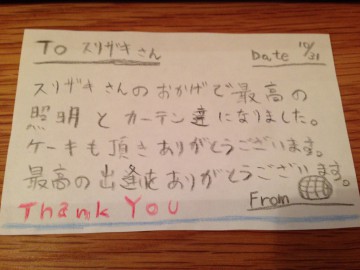 To スリザキさん
Date 10/31
スリザキさんのおかげで最高の
照明とカーテン達になりました。
ケーキも頂きありがとうございます。
最高の出逢をありがとうございます。
Thank You
From